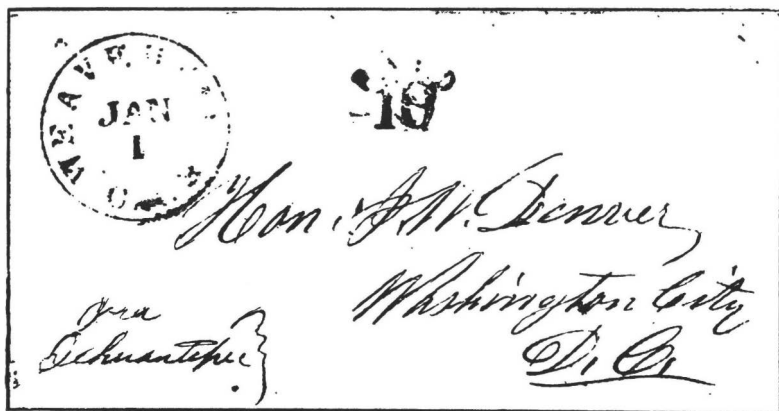 WEAVERV
JAN
1
CAL.
10
Hon. J. W. Denver,
Washington City
D. C.
via
Tehuantepec